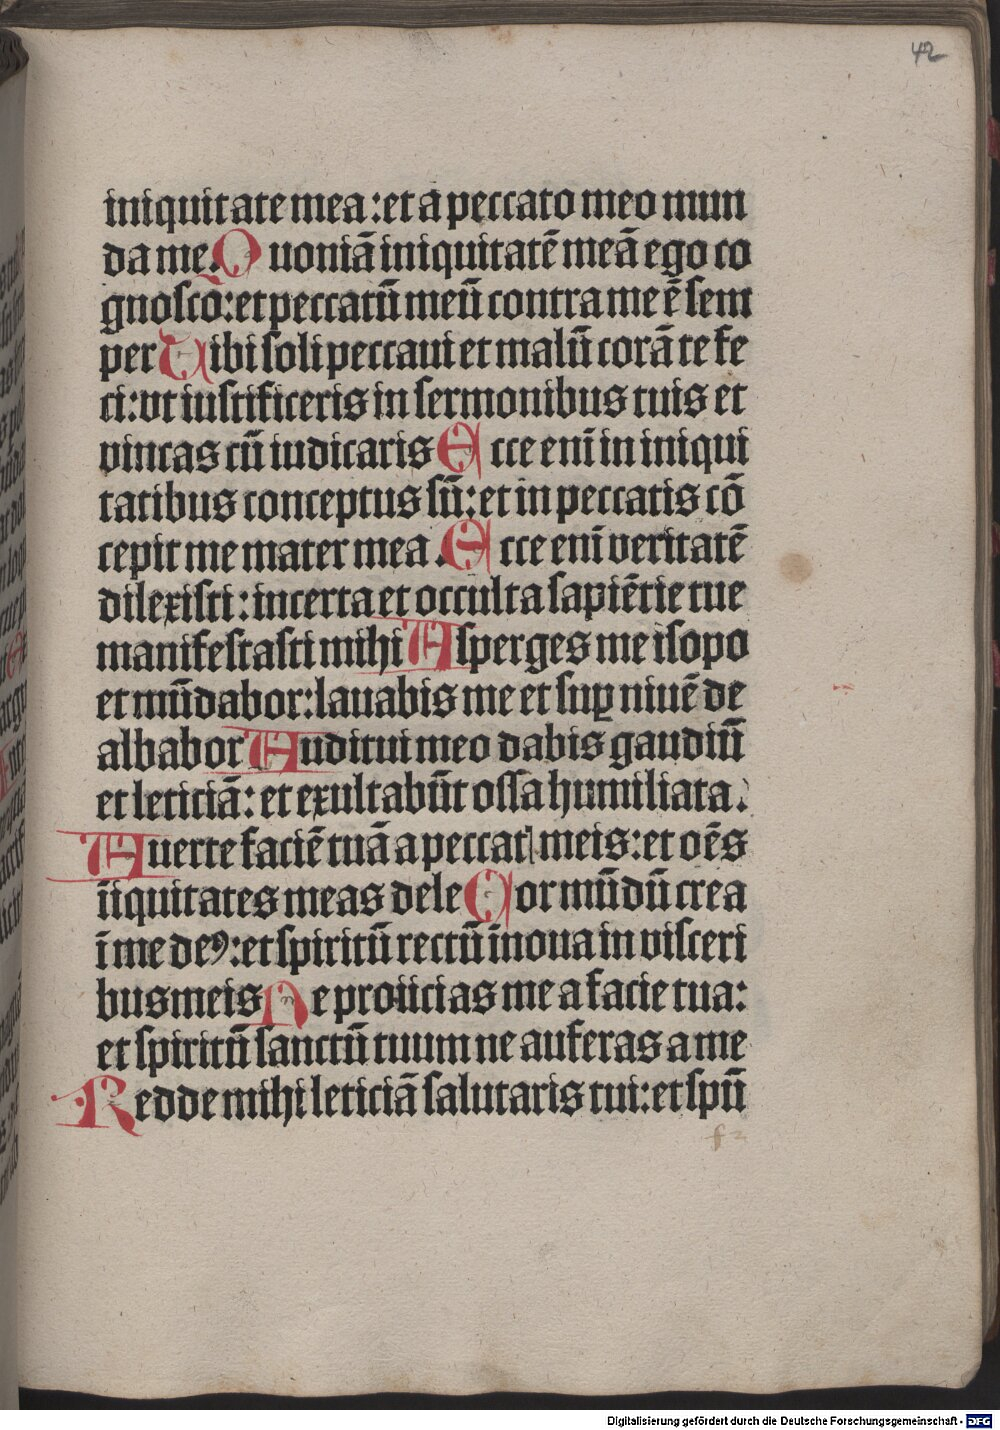 42
iniquitate mea : et a peccato meo mun
da me. Quoniā iniquitatē meā ego co
gnosco͞ : et peccatū meū contra me ē sem
per Tibi soli peccaui et malū corā te fe
ci : vt iustificeris in sermonibus tuis et
vincas cū iudicaris Ecce enī in iniqui
tatibus conceptus sū : et in peccatis cō
cepit me mater mea . Ecce enī veritatē
dilexisti : incerta et occulta sapiētie tue
manifestasti mihi Asperges me isopo
et mūdabor : lauabis me et suꝑ niuē de
albabor Auditui meo dabis gaudiū
et leticiā : et exultabūt ossa humiliata .
Auerte faciē tuā a peccatꝭ meis : et oēs
īiquitates meas dele Cor mūdū crea
ī me deꝰ : et spiritū rectū īnoua in visceri
bus meis Ne proiicias me a facie tua :
et spiritū sanctū tuum ne auferas a me
Redde mihi leticiā salutaris tui : et spū
f 2
Digitalisierung gefördert durch die Deutsche Forschungsgemeinschaft - DFG